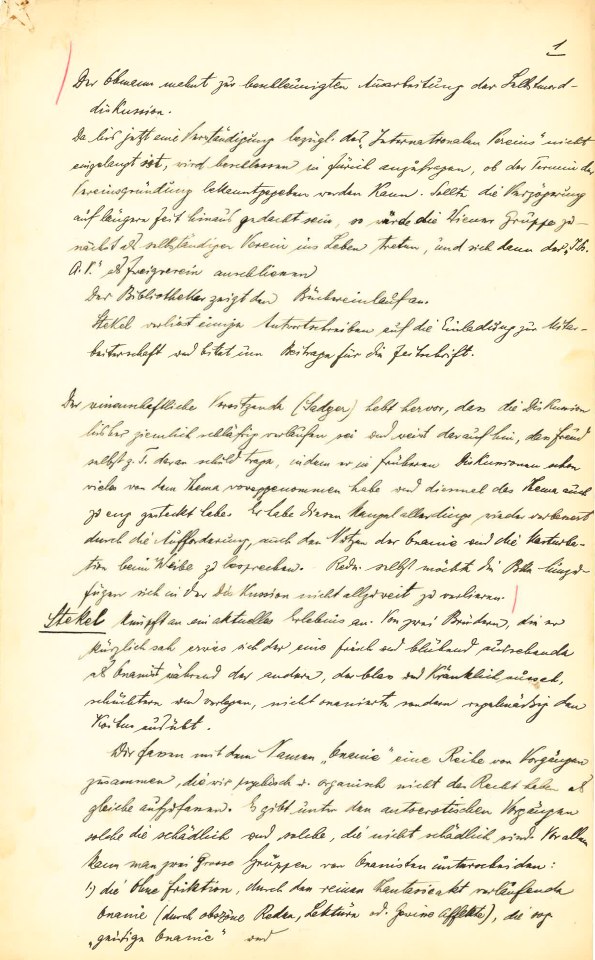 1
Der Obmann mahnt zur beschleunigten Ausarbeitung der Selbstmord-
diskussion.
Da bis jetzt eine Verständigung bezügl. des „Internationalen Vereins" nicht
eingelangt ist, wird beschlossen in Zürich anzufragen, ob der Termin der
Vereinsgründung bekanntgegeben werden kann. Sollte die Verzögerung
auf längere Zeit hinaus gedacht sein, so würde die Wiener Gruppe zu-
nächst als selbständiger Verein ins Leben treten, und sich dann der
A.V." als Zweigverein anschliessen
Der Bibliothekar zeigt den Büchereinlauf an.
Stekel verliest einige Antwortschreiben auf die Einladung zur Mitar-
beiterschaft und bittet um Beiträge für die Zeitschrift.
Der wissenschaftliche Vorsitzende (Sadger) hebt hervor, dass die Diskussion
bisher ziemlich schläfrig verlaufen sei und weist darauf hin, dass Freud
selbst z. T. daran schuld trage, indem er in früheren Diskussionen schon
vieles von dem Thema vorweggenommen habe und diesmal das Thema auch
zu eng gesteckt habe. Er habe diesen Mangel allerdings wieder verbessert
durch die Aufforderung, auch den Nutzen der Onanie und die Masturba-
tion beim Weibe zu besprechen. Redn. selbst möchte die
fügen sich in der Diskussion nicht allzuweit zu verlieren.
Stekel knüpft an ein aktuelles Erlebnis an. Von zwei Brüdern, die er
kürzlich sah erwies sich der eine frisch und blühend aussehende
als Onanist während der andere, der blass und kränklich aussah,
schüchtern und verlegen, nicht onanierte sondern regelmässig den
Koitus ausübt.
Wir fassen mit dem Namen „Onanie" eine Reihe von Vorgängen
zusammen, die wir psychisch u. organisch nicht das Recht haben als
gleiche aufzufassen. Es gibt unter den autoerotischen Vorgängen
solche die schädlich und solche, die nicht schädlich sind. Vor allem
kann man zwei grosse Gruppen von Onanisten unterscheiden:
1) die ohne Friktion, durch den reinen Fantasieakt verlaufende
Onanie (durch obszöne Reden, Lektüre od. gewisse Affekte), die sog
„geistige Onanie" und